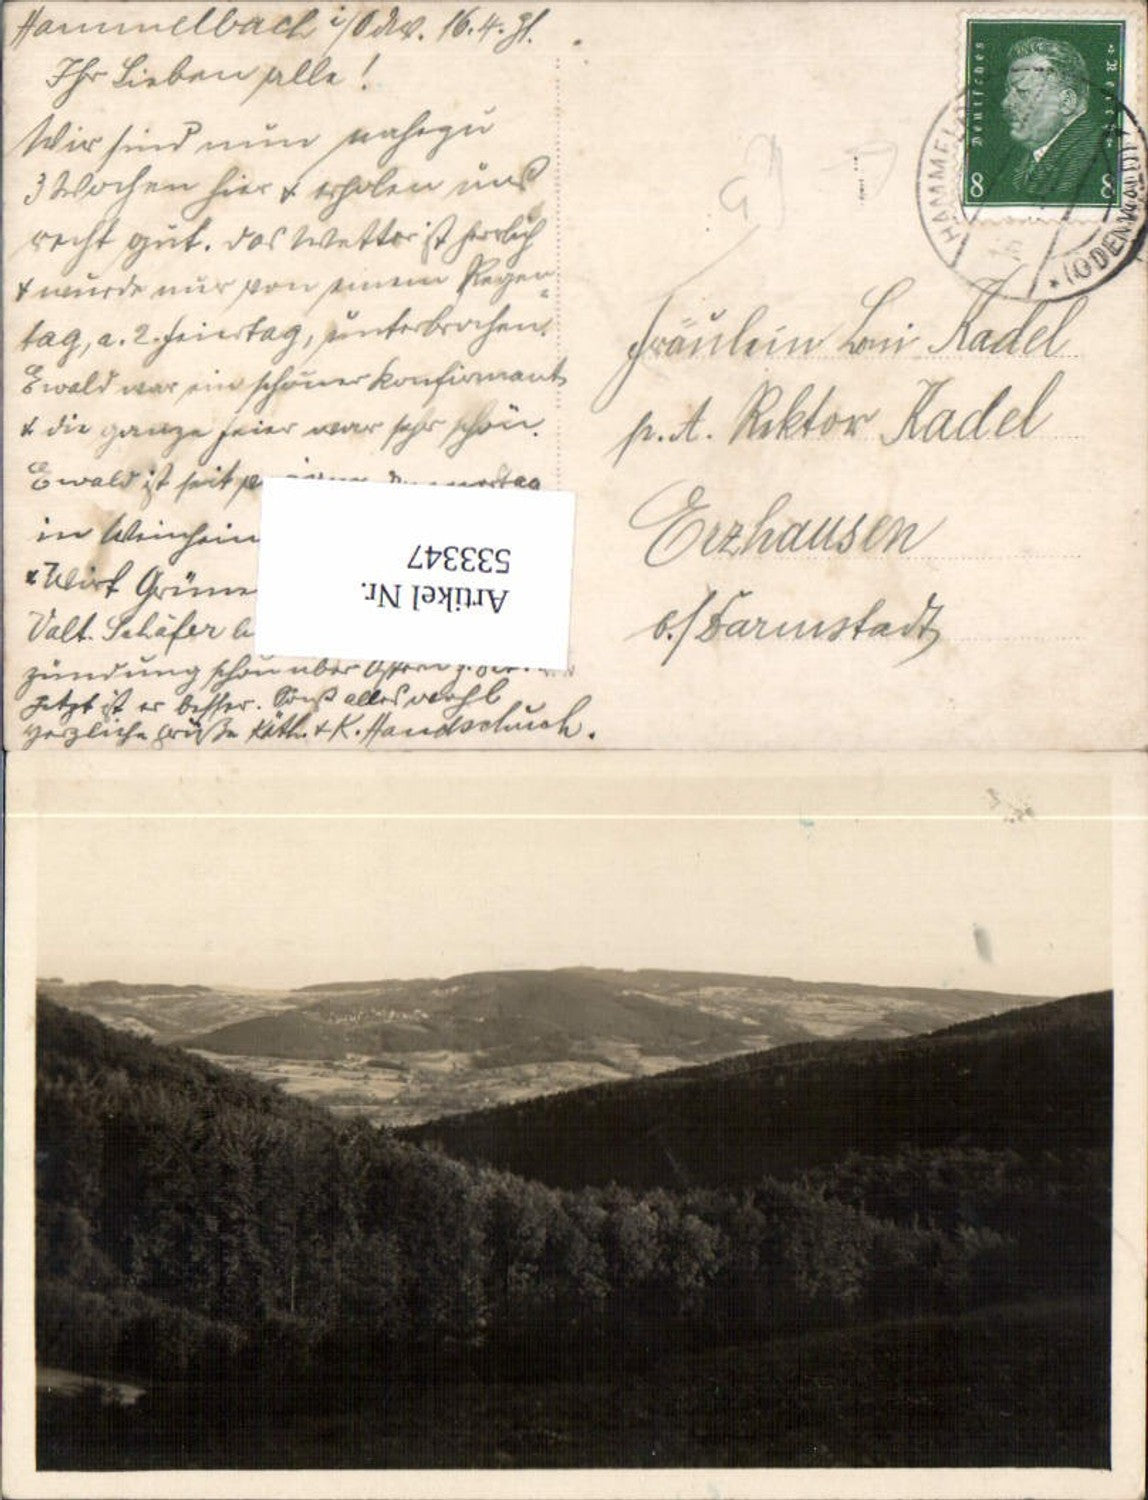 Hammelbach i/Odw. 16.4.31.
Ihr Lieben alle!
Wir sind nun nahezu
3 Wochen hier & erholen uns
recht gut. Das Wetter ist herrlich
& wurde nur von einem Regen-
tag, a. 2. Feiertag, unterbrochen.
Ewald war ein schöner Konfirmant
& die ganze Feier war sehr schön.
Ewald ist seit
in Weinheim
Wirt Grüne
Valt. Schäfer
zündung schon über Ostern
Jetzt ist er besser. Sonst alles wohl
Herzliche Grüße Käth. & K. Handschuch.
Deutsches Reich
8 8
HAMMELBACH
*(ODENWALD)*
Fräulein Loni Kadel
p. A. Rektor Kadel
Erzhausen
b./Darmstadt
Artikel Nr.
533347